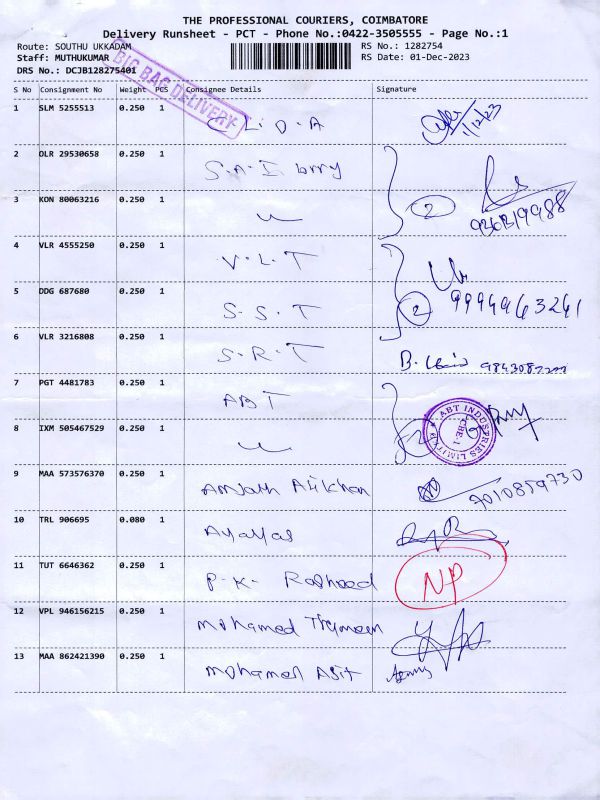 THE PROFESSIONAL COURIERS, COIMBATORE
Delivery Runsheet - PCT - Phone No.:0422-3505555 - Page No.:1
Route: SOUTHU UKKADAM
RS No.: 1282754
Staff: MUTHUKUMAR
RS Date: 01-Dec-2023
DRS No.: DCJB128275401
BIG BAG DELIVERY
S No Consignment No Weight PCS Consignee Details Signature
1 SLM 5255513 0.250 1 L.D.A 1/12/23
2 DLR 29530658 0.250 1 S.A.I
3 KON 80063216 0.250 1 2
4 VLR 4555250 0.250 1 V.L.T
5 DDG 687680 0.250 1 S.S.T 2
6 VLR 3216808 0.250 1 S.R.T B.
7 PGT 4481783 0.250 1 ABT
8 IXM 505467529 0.250 1 ABT INDUSTRIES LIMITED CBE-1
9 MAA 573576370 0.250 1 7010859730
10 TRL 906695 0.080 1
11 TUT 6646362 0.250 1 P.K. Rasheed NP
12 VPL 946156215 0.250 1 Mohamed
13 MAA 862421390 0.250 1 Mohamed Asif